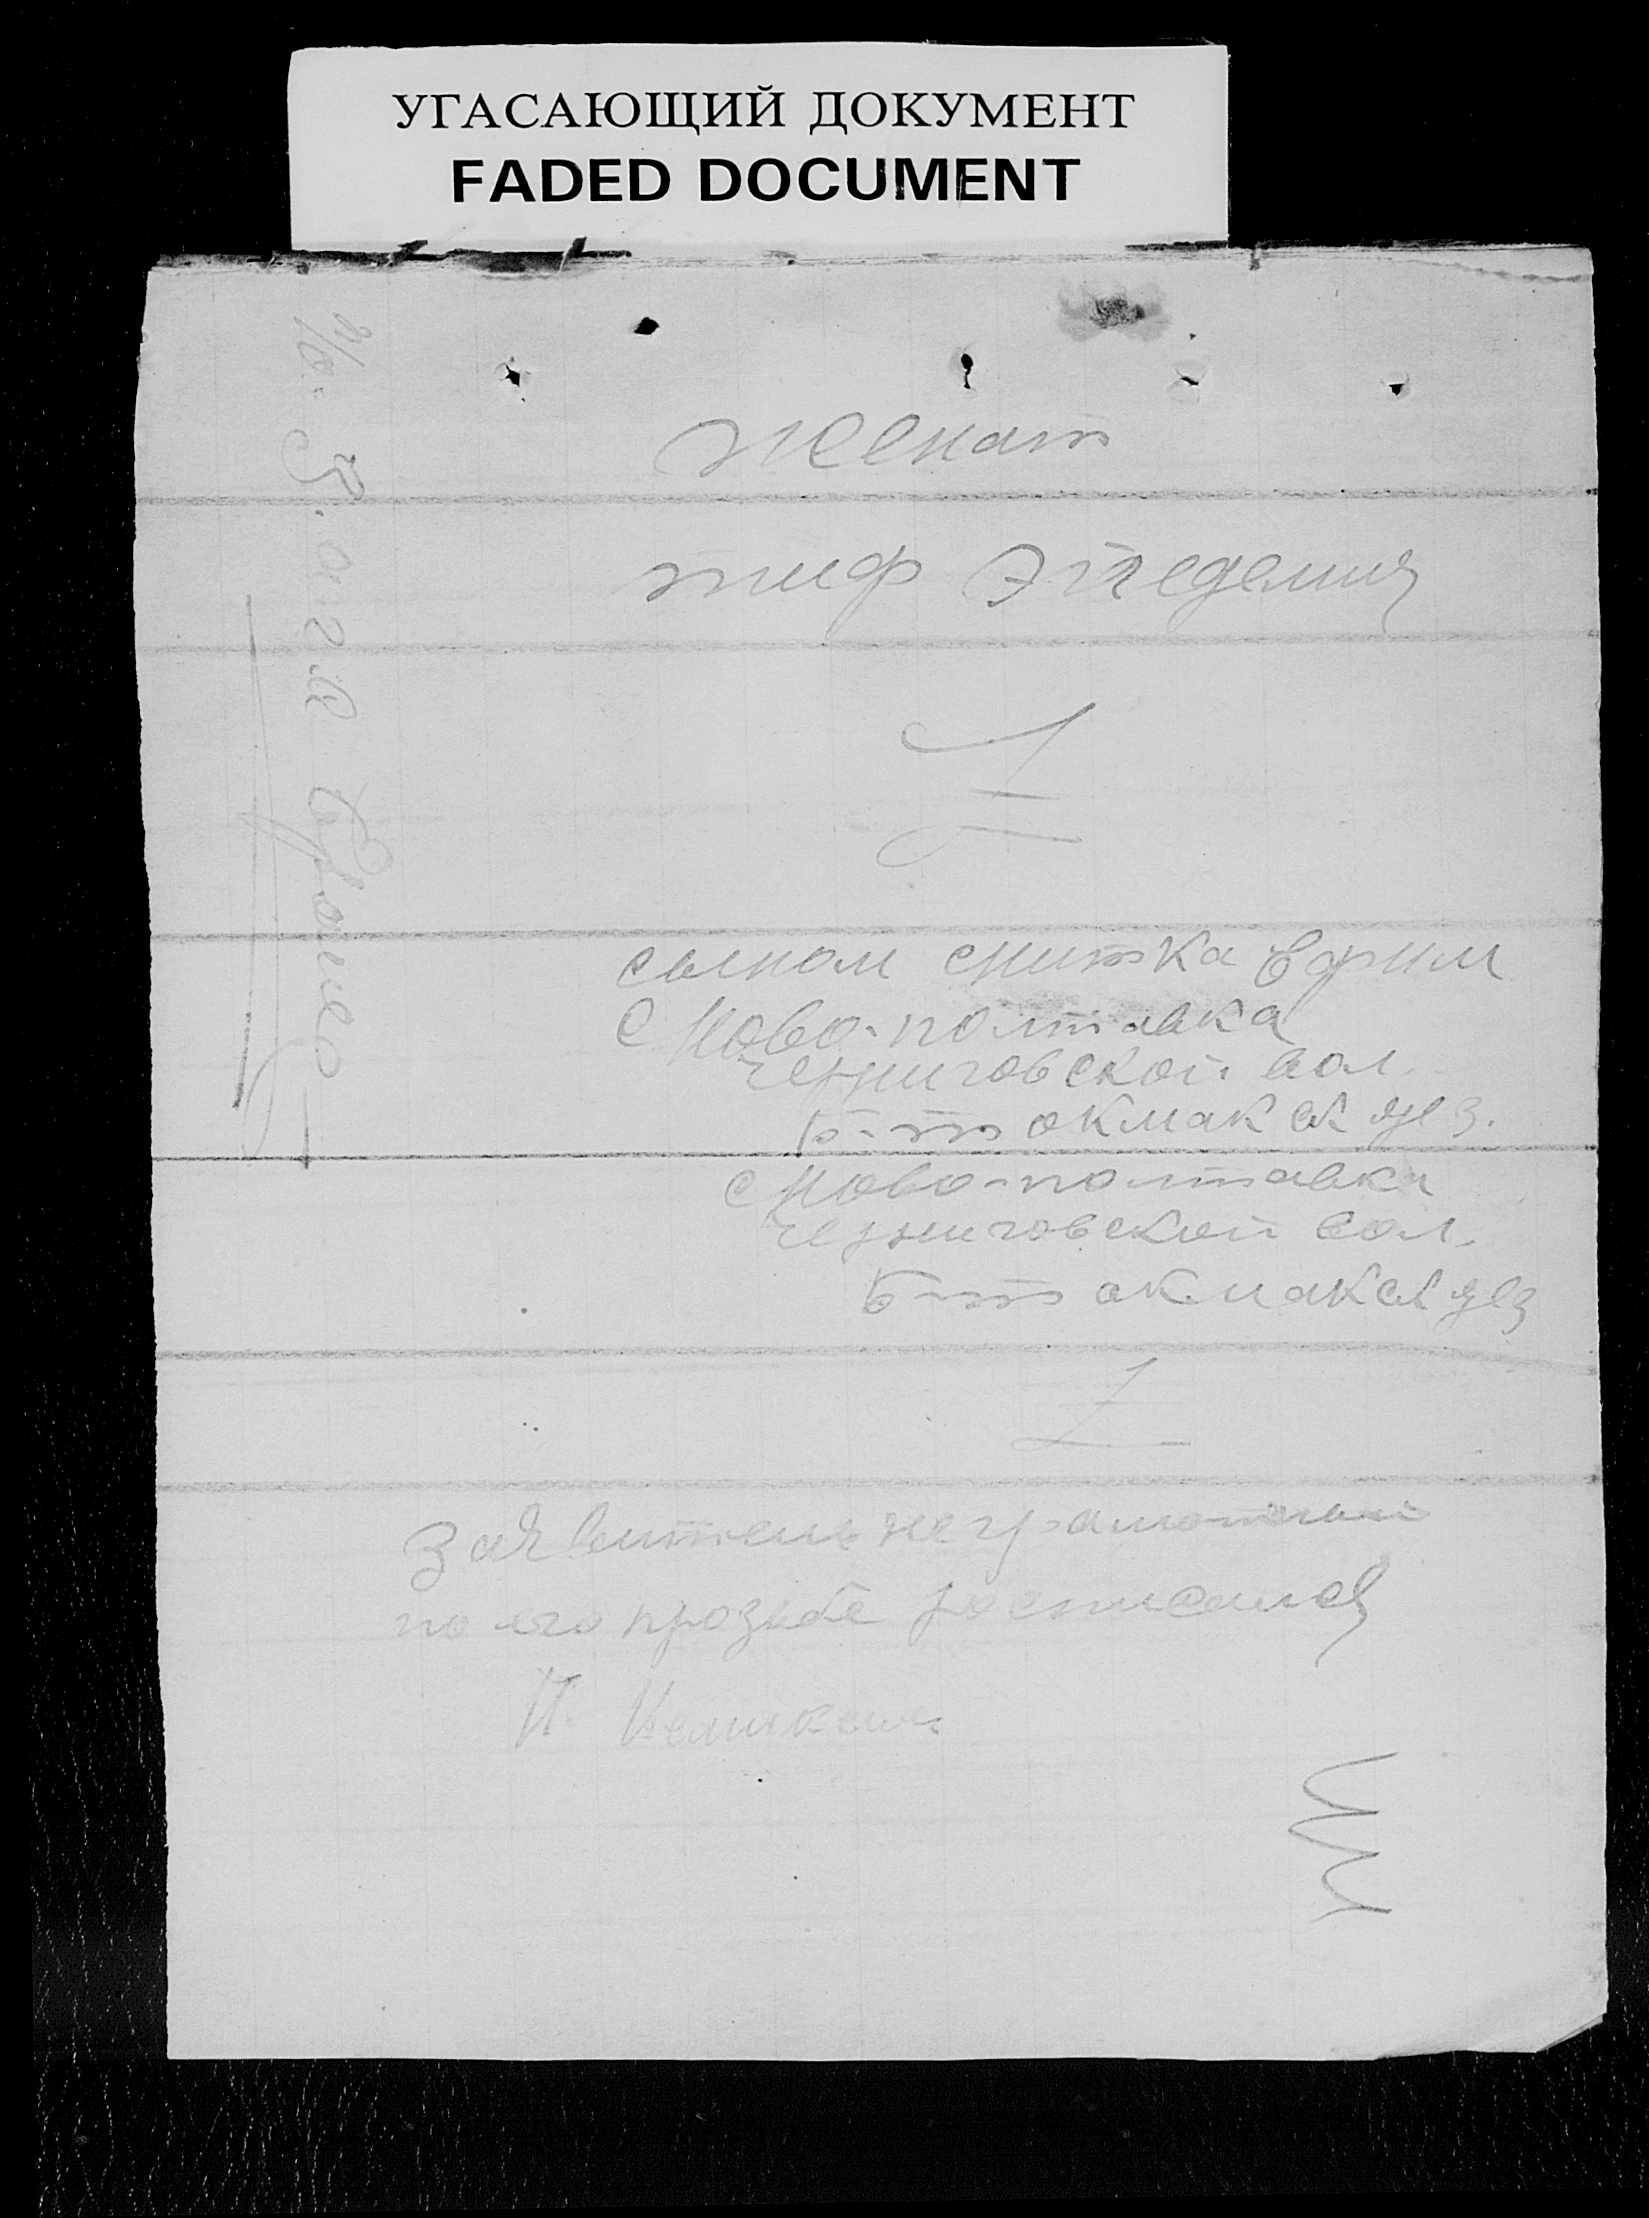 УГАСАЮЩИЙ ДОКУМЕНТ
FADED DOCUMENT
женат
тиф эпедемия
сыном снитка Ефим
с Ново-полтавка
Черниговской вол.
Б-токмакск уез.
с Ново-полтавка
Черниговской вол.
Б-токмакск уез
Заявитель неграмотный
по его прозьбе росписался
И.